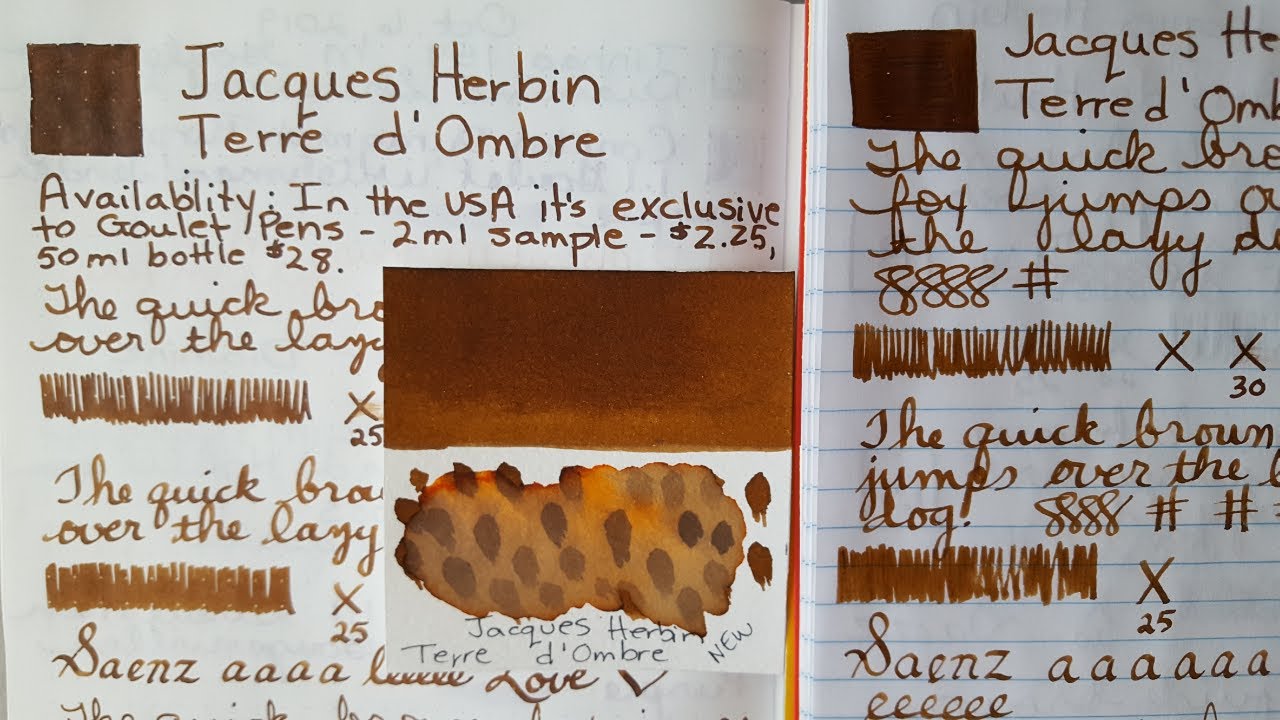 Jacques Herbin
Terre d'Ombre
Availability: In the USA it's exclusive
to Goulet Pens - 2ml sample - $2.25,
50ml bottle $28.
The quick bro
over the lazy
X
25
The quick brow
over the lazy
X
25
Saenz aaaa leeeee Love
The quick brown
Jacques Herbin
Terre d'Ombre
NEW
Jacques He
Terre d'Omb
The quick bro
fox jumps o
the lazy d
8888 #
X X
30
The quick brown
jumps over the l
dog. 8888 # #
X
25
Saenz aaaaaa
eeeeee